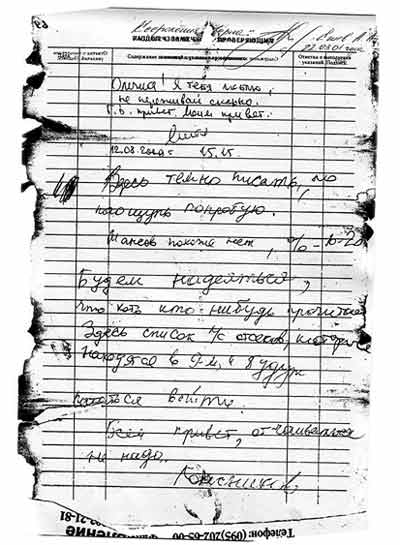 Копия верна
22.03.01
Содержание
Отметка о выполнении указаний
Олечка! Я тебя люблю,
не переживай сильно.
Г.В. привет. Моим привет.
12.08.2000г 15.15.
Здесь темно писать, но
наощупь попробую.
Шансов похоже нет, %-10-20
Будем надеяться,
что хоть кто-нибудь прочитает
Здесь список л/с отсеков, которые
находятся в 9-м, и будут
пытаться выйти.
Всем привет, отчаиваться
не надо.
Колесников.
Телефон: (095)202-65-00